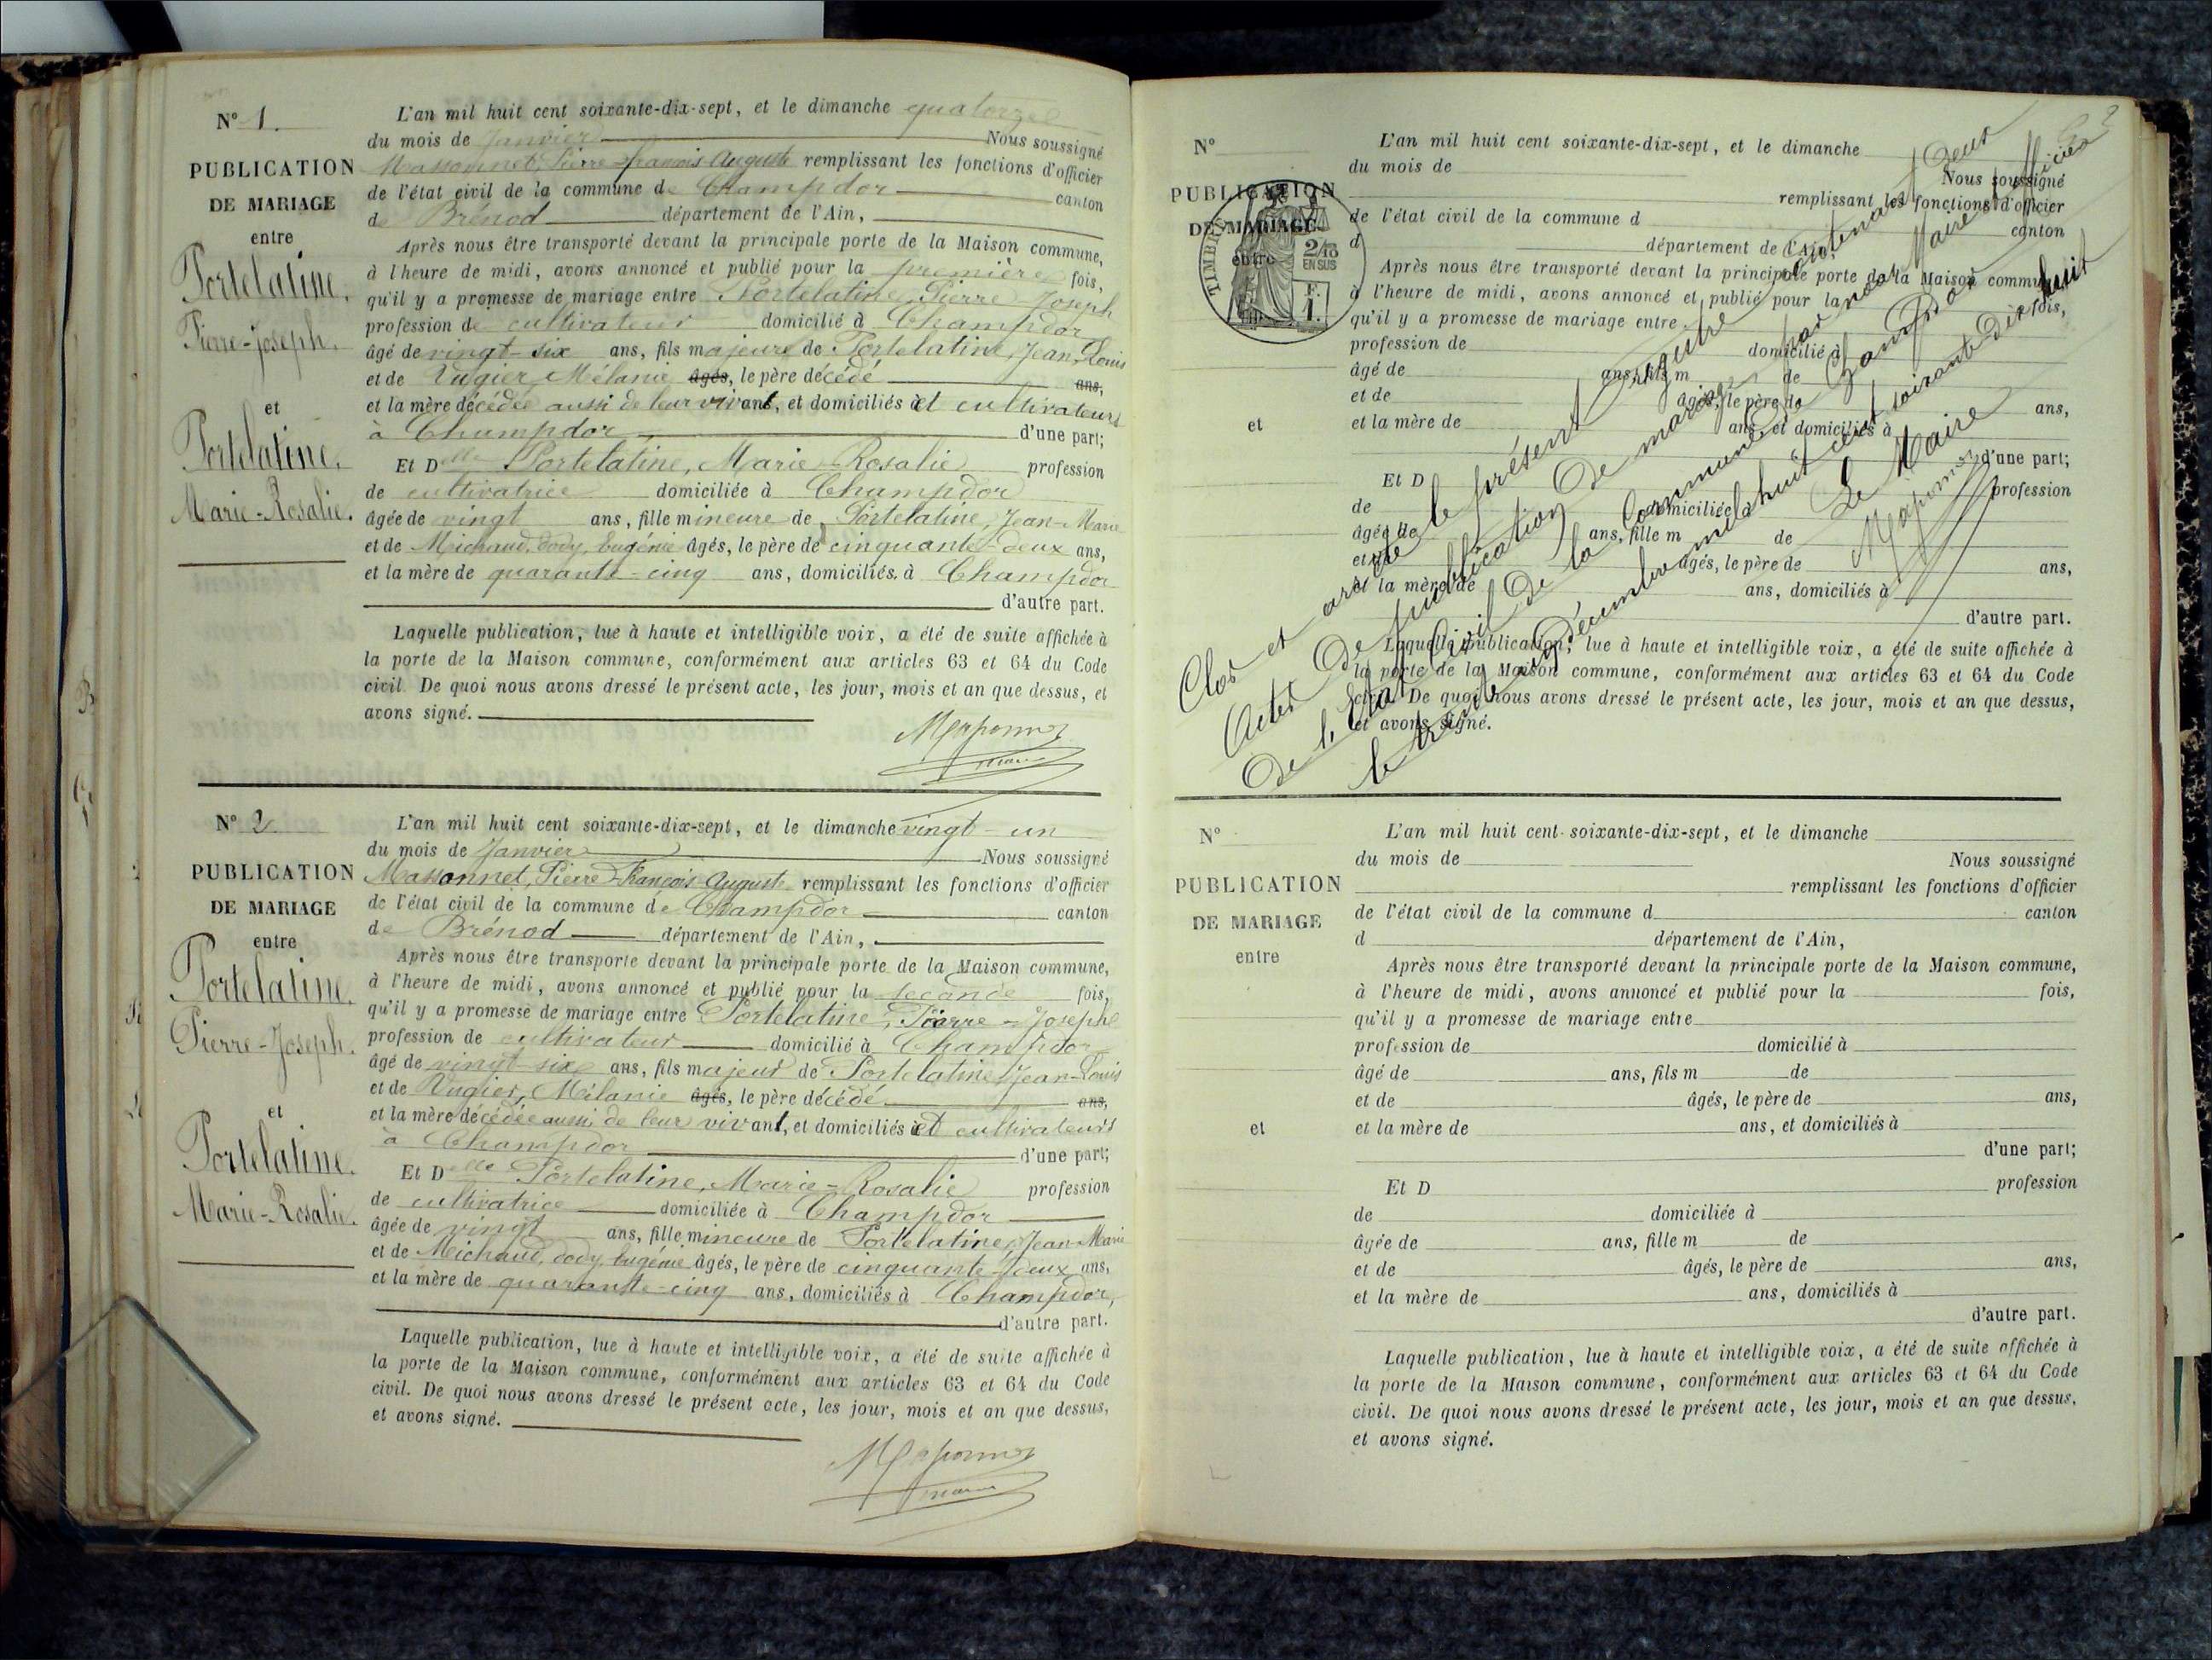 N° 1.
PUBLICATION
DE MARIAGE
entre
Portelatine,
Pierre-Joseph.
et
Portelatine,
Marie-Rosalie.
L'an mil huit cent soixante-dix-sept, et le dimanche quatorze
du mois de Janvier Nous soussigné
Massonnet, Pierre-françois Auguste remplissant les fonctions d'officier
de l'état civil de la commune de Champdor canton
de Brénod département de l'Ain,
Après nous être transporté devant la principale porte de la Maison commune,
à l'heure de midi, avons annoncé et publié pour la première fois,
qu'il y a promesse de mariage entre Portelatine, Pierre Joseph
profession de cultivateur domicilié à Champdor
âgé de vingt-six ans, fils majeure de Portelatine, Jean-Louis
et de Vugier, Mélanie âgés, le père décédé ans,
et la mère décédée aussi de leur vivant, et domiciliés à et cultivateurs
à Champdor d'une part;
Et Delle Portelatine, Marie-Rosalie profession
de cultivatrice domiciliée à Champdor
âgée de vingt ans, fille mineure de Portelatine, Jean-Marie
et de Michaud, dody, Eugénie âgés, le père de cinquante-deux ans,
et la mère de quarante-cinq ans, domiciliés à Champdor
d'autre part.
Laquelle publication, lue à haute et intelligible voix, a été de suite affichée à
la porte de la Maison commune, conformément aux articles 63 et 64 du Code
civil. De quoi nous avons dressé le présent acte, les jour, mois et an que dessus, et
avons signé.
N° 2
PUBLICATION
DE MARIAGE
entre
Portelatine,
Pierre-Joseph.
et
Portelatine.
Marie-Rosalie.
L'an mil huit cent soixante-dix-sept, et le dimanche vingt-un
du mois de Janvier Nous soussigné
Massonnet, Pierre-François Auguste remplissant les fonctions d'officier
de l'état civil de la commune de Champdor canton
de Brénod département de l'Ain,
Après nous être transporté devant la principale porte de la Maison commune,
à l'heure de midi, avons annoncé et publié pour la seconde fois,
qu'il y a promesse de mariage entre Portelatine, Pierre-Joseph
profession de cultivateur domicilié à Champdor
âgé de vingt-six ans, fils majeur de Portelatine, Jean-Louis
et de Vugier, Mélanie âgés, le père décédé ans,
et la mère décédée aussi, de leur vivant, et domiciliés à et cultivateurs
à Champdor d'une part;
Et Delle Portelatine, Marie-Rosalie profession
de cultivatrice domiciliée à Champdor
âgée de vingt ans, fille mineure de Portelatine, Jean-Marie
et de Michaud, dody, Eugénie âgés, le père de cinquante-deux ans,
et la mère de quarante-cinq ans, domiciliés à Champdor,
d'autre part.
Laquelle publication, lue à haute et intelligible voix, a été de suite affichée à
la porte de la Maison commune, conformément aux articles 63 et 64 du Code
civil. De quoi nous avons dressé le présent acte, les jour, mois et an que dessus,
et avons signé.
2
N°
PUBLICATION
DE MARIAGE
entre
et
TIMBRE
2/10
EN SUS
F.
1.
L'an mil huit cent soixante-dix-sept, et le dimanche
du mois de Nous soussigné
remplissant les fonctions d'officier
de l'état civil de la commune d canton
d département de l'Ain,
Après nous être transporté devant la principale porte de la Maison commune,
à l'heure de midi, avons annoncé et publié pour la fois,
qu'il y a promesse de mariage entre
profession de domicilié à
âgé de ans, fils m de
et de âgés, le père de ans,
et la mère de ans, et domiciliés à
d'une part;
Et D profession
de domiciliée à
âgée de ans, fille m de
et de âgés, le père de ans,
et la mère de ans, domiciliés à
d'autre part.
Laquelle publication, lue à haute et intelligible voix, a été de suite affichée à
la porte de la Maison commune, conformément aux articles 63 et 64 du Code
civil. De quoi nous avons dressé le présent acte, les jour, mois et an que dessus,
et avons signé.
Clos et arrêté le présent registre contenant Deux
Actes De publication De mariage par nous Maire officier
De l'Etat Civil De la Commune De Champdor
le trente un Décembre mil huit cent soixante Dix huit
Le Maire
N°
PUBLICATION
DE MARIAGE
entre
et
L'an mil huit cent soixante-dix-sept, et le dimanche
du mois de Nous soussigné
remplissant les fonctions d'officier
de l'état civil de la commune d canton
d département de l'Ain,
Après nous être transporté devant la principale porte de la Maison commune,
à l'heure de midi, avons annoncé et publié pour la fois,
qu'il y a promesse de mariage entre
profession de domicilié à
âgé de ans, fils m de
et de âgés, le père de ans,
et la mère de ans, et domiciliés à
d'une part;
Et D profession
de domiciliée à
âgée de ans, fille m de
et de âgés, le père de ans,
et la mère de ans, domiciliés à
d'autre part.
Laquelle publication, lue à haute et intelligible voix, a été de suite affichée à
la porte de la Maison commune, conformément aux articles 63 et 64 du Code
civil. De quoi nous avons dressé le présent acte, les jour, mois et an que dessus,
et avons signé.